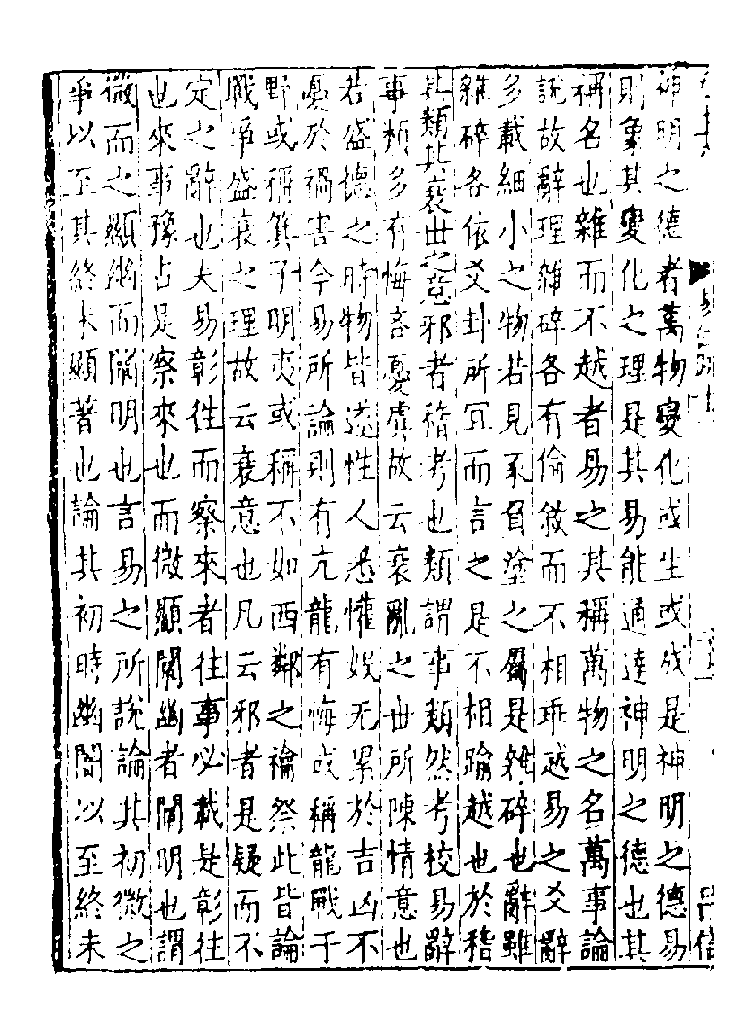 神明之德者萬物變化或生或成是神明之德易
則象其變化之理是其易能通達神明之德也其
稱名也雜而不越者易之其稱萬物之名萬事論
說故辭理雜碎各有倫敘而不相乖越易之爻辭
多載細小之物若見豕負塗之屬是雜碎也辭雖
雜碎各依爻卦所宜而言之是不相踰越也於稽
其類其衰世之意邪者稽考也類謂事類然考校易辭
事類多有悔吝憂虞故云衰亂之世所陳情意也
若盛德之時物皆遂性人悉懽娛无累於吉凶不
憂於禍害今易所論則有亢龍有悔或稱龍戰于
野或稱箕子明夷或稱不如西鄰之禴祭此皆論
戰爭盛衰之理故云衰意也凡云邪者是疑而不
定之辭也夫易彰往而察來者往事必載是彰往
也來事豫占是察來也而微顯闡幽者闡明也謂
微而之顯幽而闡明也言易之所說論其初微之
事以至其終末顯著也論其初時幽闇以至終末